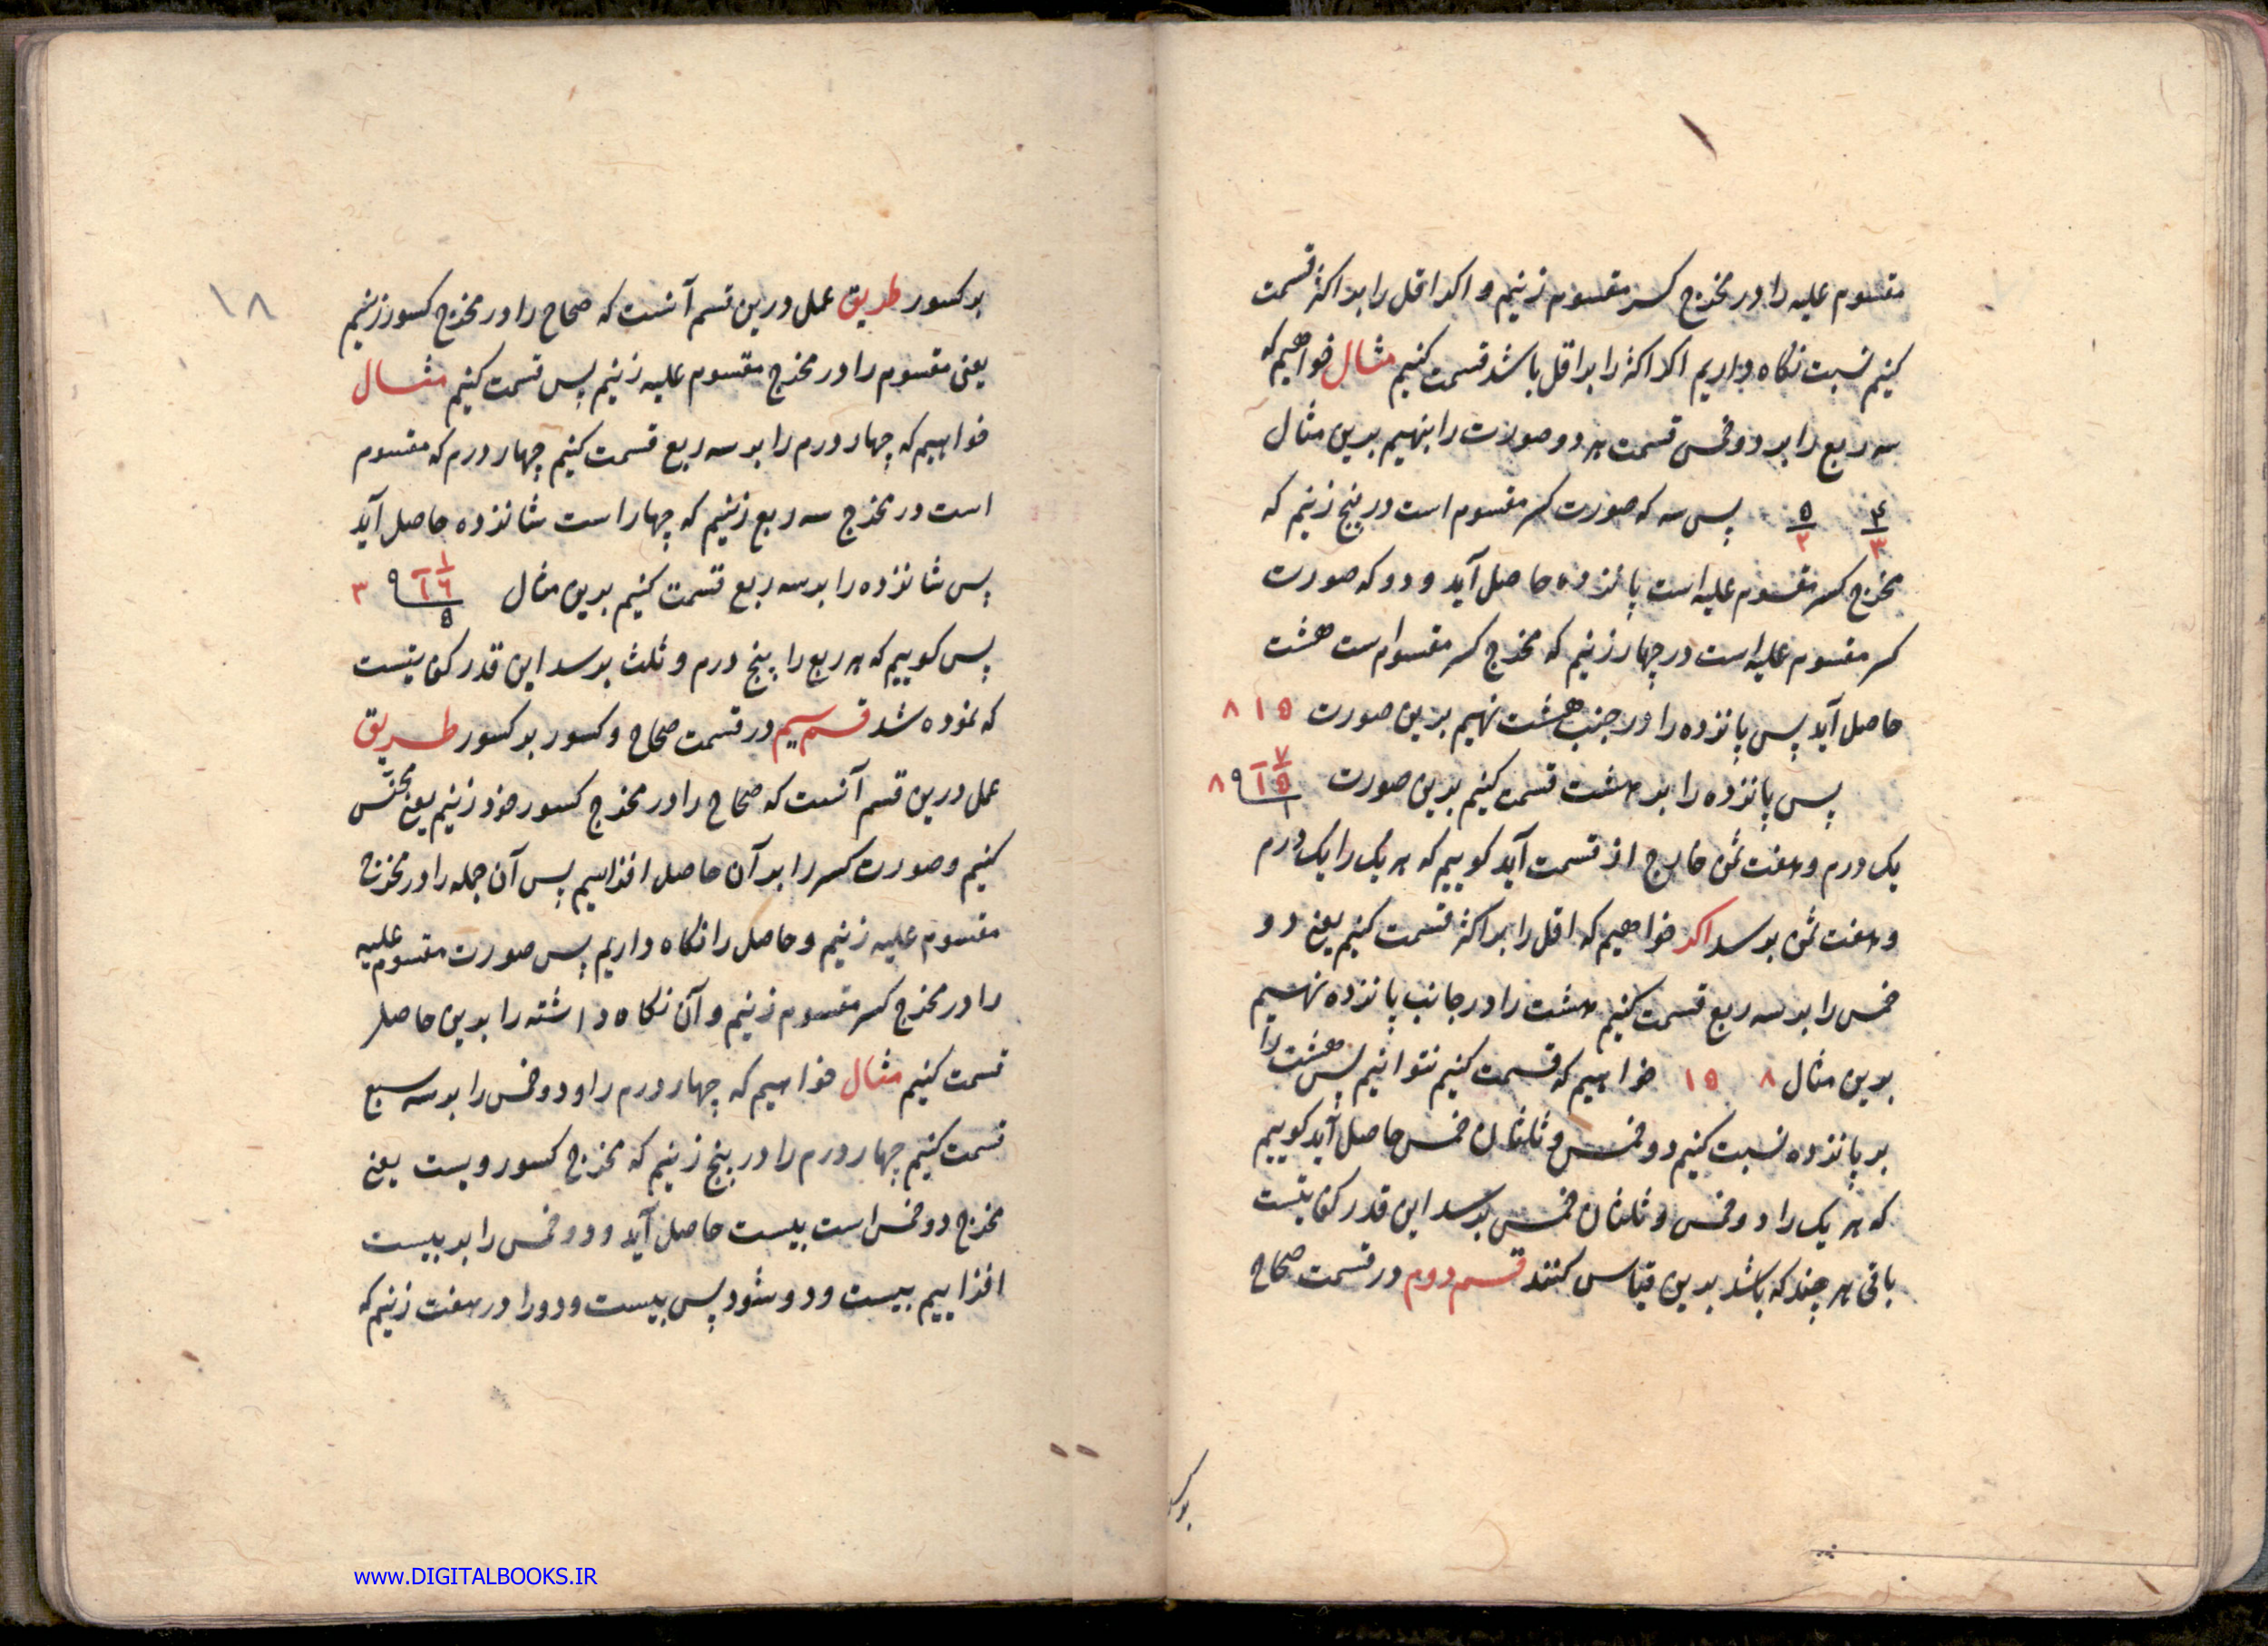 مقسوم علیه را در مخرج کسر مقسوم زنیم و اکر اقل را بر اکثر قسمت
کنیم نسبت نکاه داریم اکر اکثر را بر اقل باشد قسمت کنیم مثال خواهیم که
سه ربع را بر دو خمس قسمت هر دو صورت را بنهیم بدین مثال
۴ ۵ پس سه که صورت کسر مقسوم است در پنج زنیم که
۳ ۲
مخرج کسر مقسوم علیه است پانزده حاصل آید و دو که صورت
کسر مقسوم علیه است در چهار زنیم که مخرج کسر مقسوم است هشت
حاصل آید پس پانزده را در جنب هشت نهیم بدین صورت ۱۵ ۸
پس پانزده را بر هشت قسمت کنیم بدین صورت ۷ ۱۵ ۸ ۱
یک درم و هفت ثمن خارج از قسمت آید کوییم که هر یک را یک درم
و هفت ثمن برسد اکر خواهیم که اقل را بر اکثر قسمت کنیم یعنی دو
خمس را بر سه ربع قسمت کنیم هشت را در جانب پانزده نهیم
بدین مثال ۸ ۱۵ خواهیم که قسمت کنیم نتوانیم پس هشت را
بر پانزده نسبت کنیم دو خمس و ثلثان خمس حاصل آید کوییم
که هر یک را دو خمس و ثلثان خمس برسد این قدر کفایتست
باقی هر چند که باشد بدین قیاس کنند قسم دوم در قسمت صحاح
بر کسور
بر کسور طریق عمل درین قسم آنست که صحاح را در مخرج کسور زنیم
یعنی مقسوم را در مخرج مقسوم علیه زنیم پس قسمت کنیم مثال
خواهیم که چهار درم را بر سه ربع قسمت کنیم چهار درم که مقسوم
است در مخرج سه ربع زنیم که چهار است شانزده حاصل آید
پس شانزده را بر سه ربع قسمت کنیم بدین مثال ۱ ۱۶ ۳ ۵
پس کوییم که هر ربع را پنج درم و ثلث برسد این قدر کفایتست
که نموده شد قسم سیم در قسمت صحاح و کسور بر کسور طریق
عمل درین قسم آنست که صحاح را در مخرج کسور خود زنیم یعنی مجنس
کنیم و صورت کسر را بر آن حاصل افزاییم پس آن جمله را در مخرج
مقسوم علیه زنیم و حاصل را نکاه داریم پس صورت مقسوم علیه
را در مخرج کسر مقسوم زنیم و آن نکاه داشته را بدین حاصل
قسمت کنیم مثال خواهیم که چهار درم را و دو خمس را بر سه سبع
قسمت کنیم چهار درم را در پنج زنیم که مخرج کسور ویست یعنی
مخرج دو خمس است بیست حاصل آید و دو خمس را بر بیست
افزاییم بیست و دو شود پس بیست و دو را در هفت زنیم که
۱۸
www.DIGITALBOOKS.IR